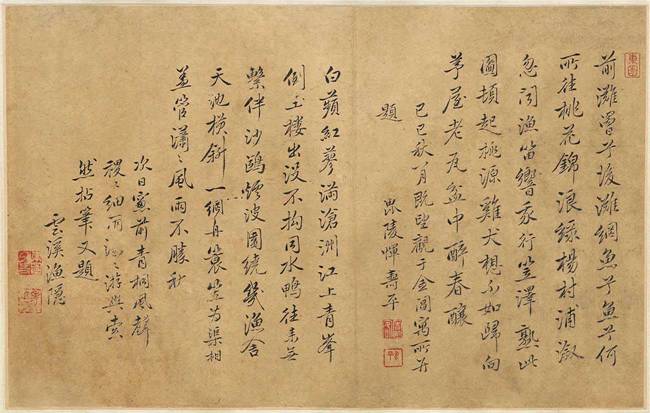 前灘罾子後灘網魚子魚子何
所在桃花錦浪綠楊村浦漵
忽聞漁笛響我行笠澤熟此
圖頓起桃源雞犬想不如歸向
茅屋老瓦盆中醉春釀
己巳秋八月既望觀于金閶寓所并
題 毘陵惲壽平
白蘋紅蓼滿滄洲江上青峯
倒玉樓出沒不拘同水鴨往来無
繫伴沙鷗煙波圍繞緣漁舍
天地橫斜一網舟簑笠為渠相
蓋管瀟〻風雨不勝秋
次日窗前青桐風聲
稷〻細雨游興索
然拈筆又題
雲溪漁隱